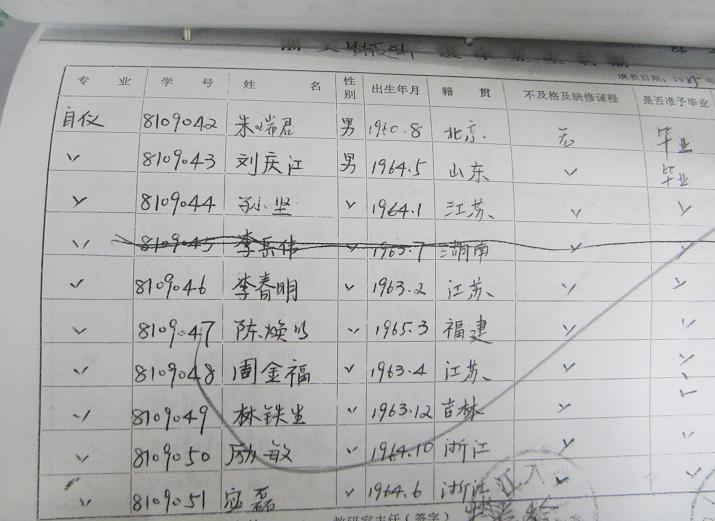 填表日期：1985年
专 业 学 号 姓 名 性别 出生年月 籍 贯 不及格及缺修课程 是否准予毕业
自仪 8109042 朱端君 男 1960.8 北京 无 毕业
✓ 8109043 刘庆江 男 1964.5 山东 ✓ 毕业
✓ 8109044 孙坚 ✓ 1964.1 江苏 ✓ ✓
✓ 8109045 李 伟 ✓ 1963.7 湖南 ✓ ✓
✓ 8109046 李春明 ✓ 1963.2 江苏 ✓ ✓
✓ 8109047 陈焕 ✓ 1965.3 福建 ✓ ✓
✓ 8109048 周金福 ✓ 1963.4 江苏 ✓ ✓
✓ 8109049 林铁生 ✓ 1963.12 吉林 ✓ ✓
✓ 8109050 励敏 ✓ 1964.10 浙江 ✓ ✓
✓ 8109051 磊 ✓ 1964.6 浙江 ✓
教研室主任（签字）